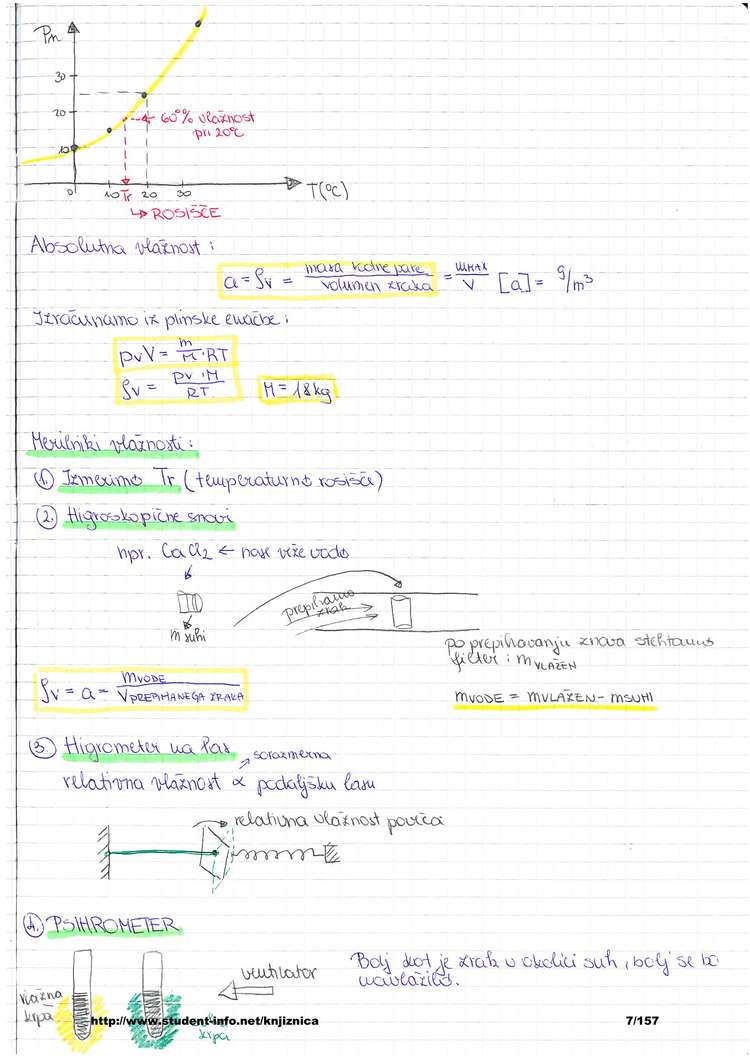 Pn
30
20
10
60% vlažnost
pri 20°C
0 10 Tr 20 30 T(°C)
↳ ROSIŠČE
Absolutna vlažnost:
a = ρv = masa vodne pare / volumen zraka = mH2O / V [a] = g/m³
Izračunamo iz plinske enačbe:
pvV = m/M · RT
ρv = pv · M / RT M = 18kg
Merilniki vlažnosti:
1. Izmerimo Tr (temperaturno rosišče)
2. Higroskopične snovi
npr. CaCl2 ← nase veže vodo
m suhi
prepihamo
zrak
po prepihavanju znova stehtamo
filter: mVLAŽEN
ρv = a = mVODE / VPREPIHANEGA ZRAKA
mVODE = mVLAŽEN - mSUHI
3. Higrometer na las
sorazmerna
relativna vlažnost ∝ podaljšku lasu
relativna vlažnost povrča
4. PSIHROMETER
ventilator
Bolj kot je zrak v okolici suh, bolj se bo
vlažna
krpa
krpa
http://www.student-info.net/knjiznica
7/157